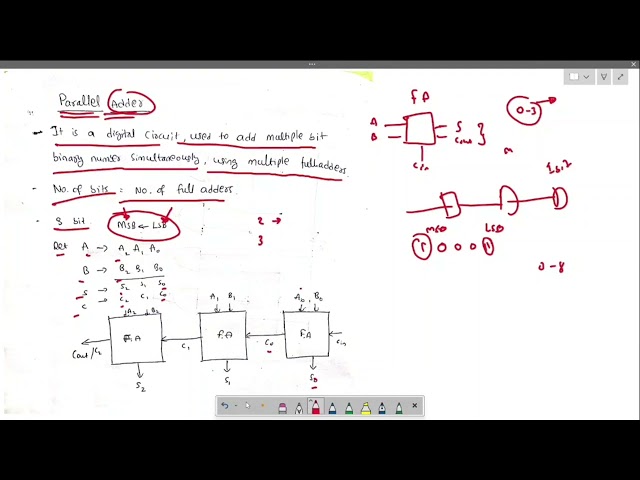 Parallel Adder
- It is a digital Circuit, used to add multiple bit
binary numer simultaneously, using multiple fulladders
- No. of bits = No. of full adders.
- 3 bit. MSB ← LSB
Let A → A2 A1 A0
B → B2 B1 B0
S → S2 S1 S0
C → C2 C1 C0
2 →
3
A2 B2 A1 B1 A0 B0
F.A F.A F.A
Cout/C2 C1 C0 Cin
S2 S1 S0
FA
A
B
S
Cout
Cin
0-3
MSB LSB
1 0 0 0 1
0-8